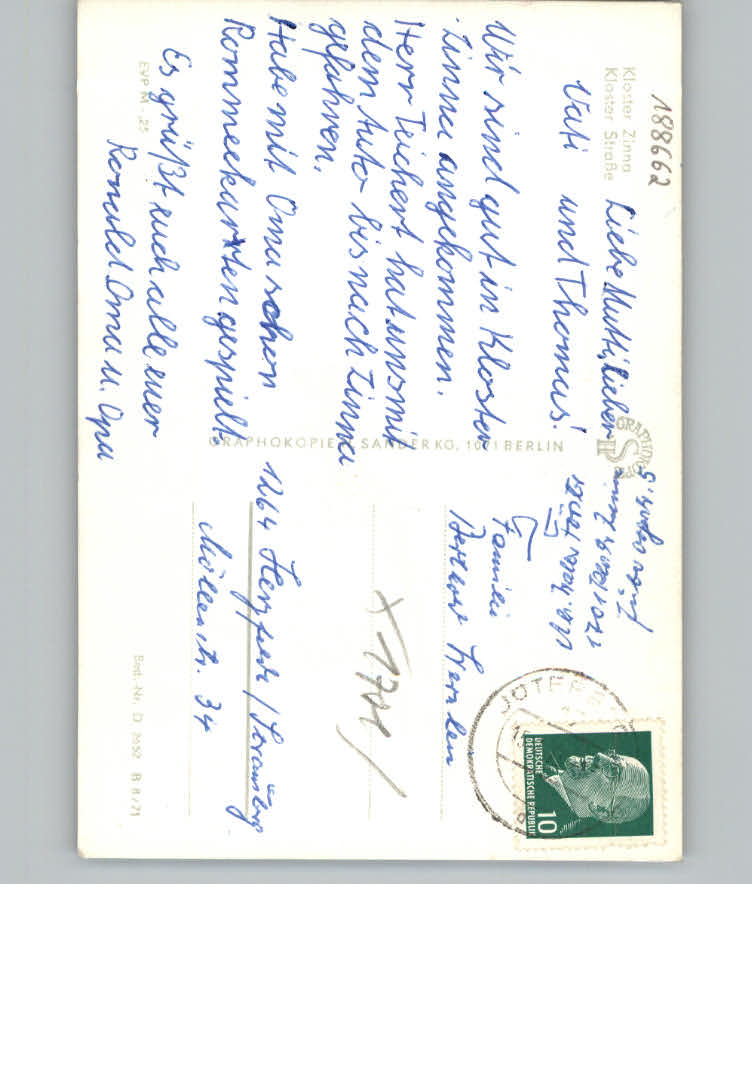 188662
Kloster Zinna
Kloster Straße
Liebe Mutti, lieber
Vati und Thomas!
Wir sind gut in Kloster
Zinna angekommen.
Herr Teichert hat uns mit
dem Auto bis nach Zinna
gefahren.
Habe mit Oma schon
Rommeekarten gespielt.
Es grüßt euch alle euer
Ronald Oma u. Opa
EVP M -,25
GRAPHOKOPIE H. SANDER KG, 1071 BERLIN
GRAPHOKOPIE
H S
1701
JÜTERBOG
DEUTSCHE
DEMOKRATISCHE REPUBLIK
10
Familie
x 1701
1264 Herzfelde / Strausberg
Möllenstr. 34
Best.-Nr. D 2652 B 8/71